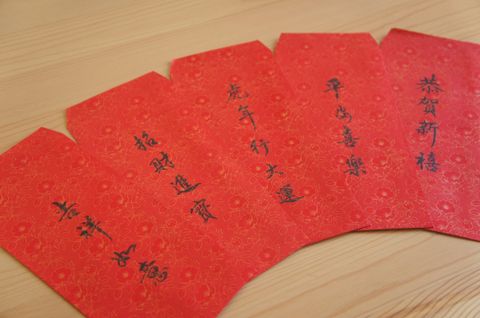 吉祥如意
招財進寶
虎年行大運
平安喜樂
恭賀新禧